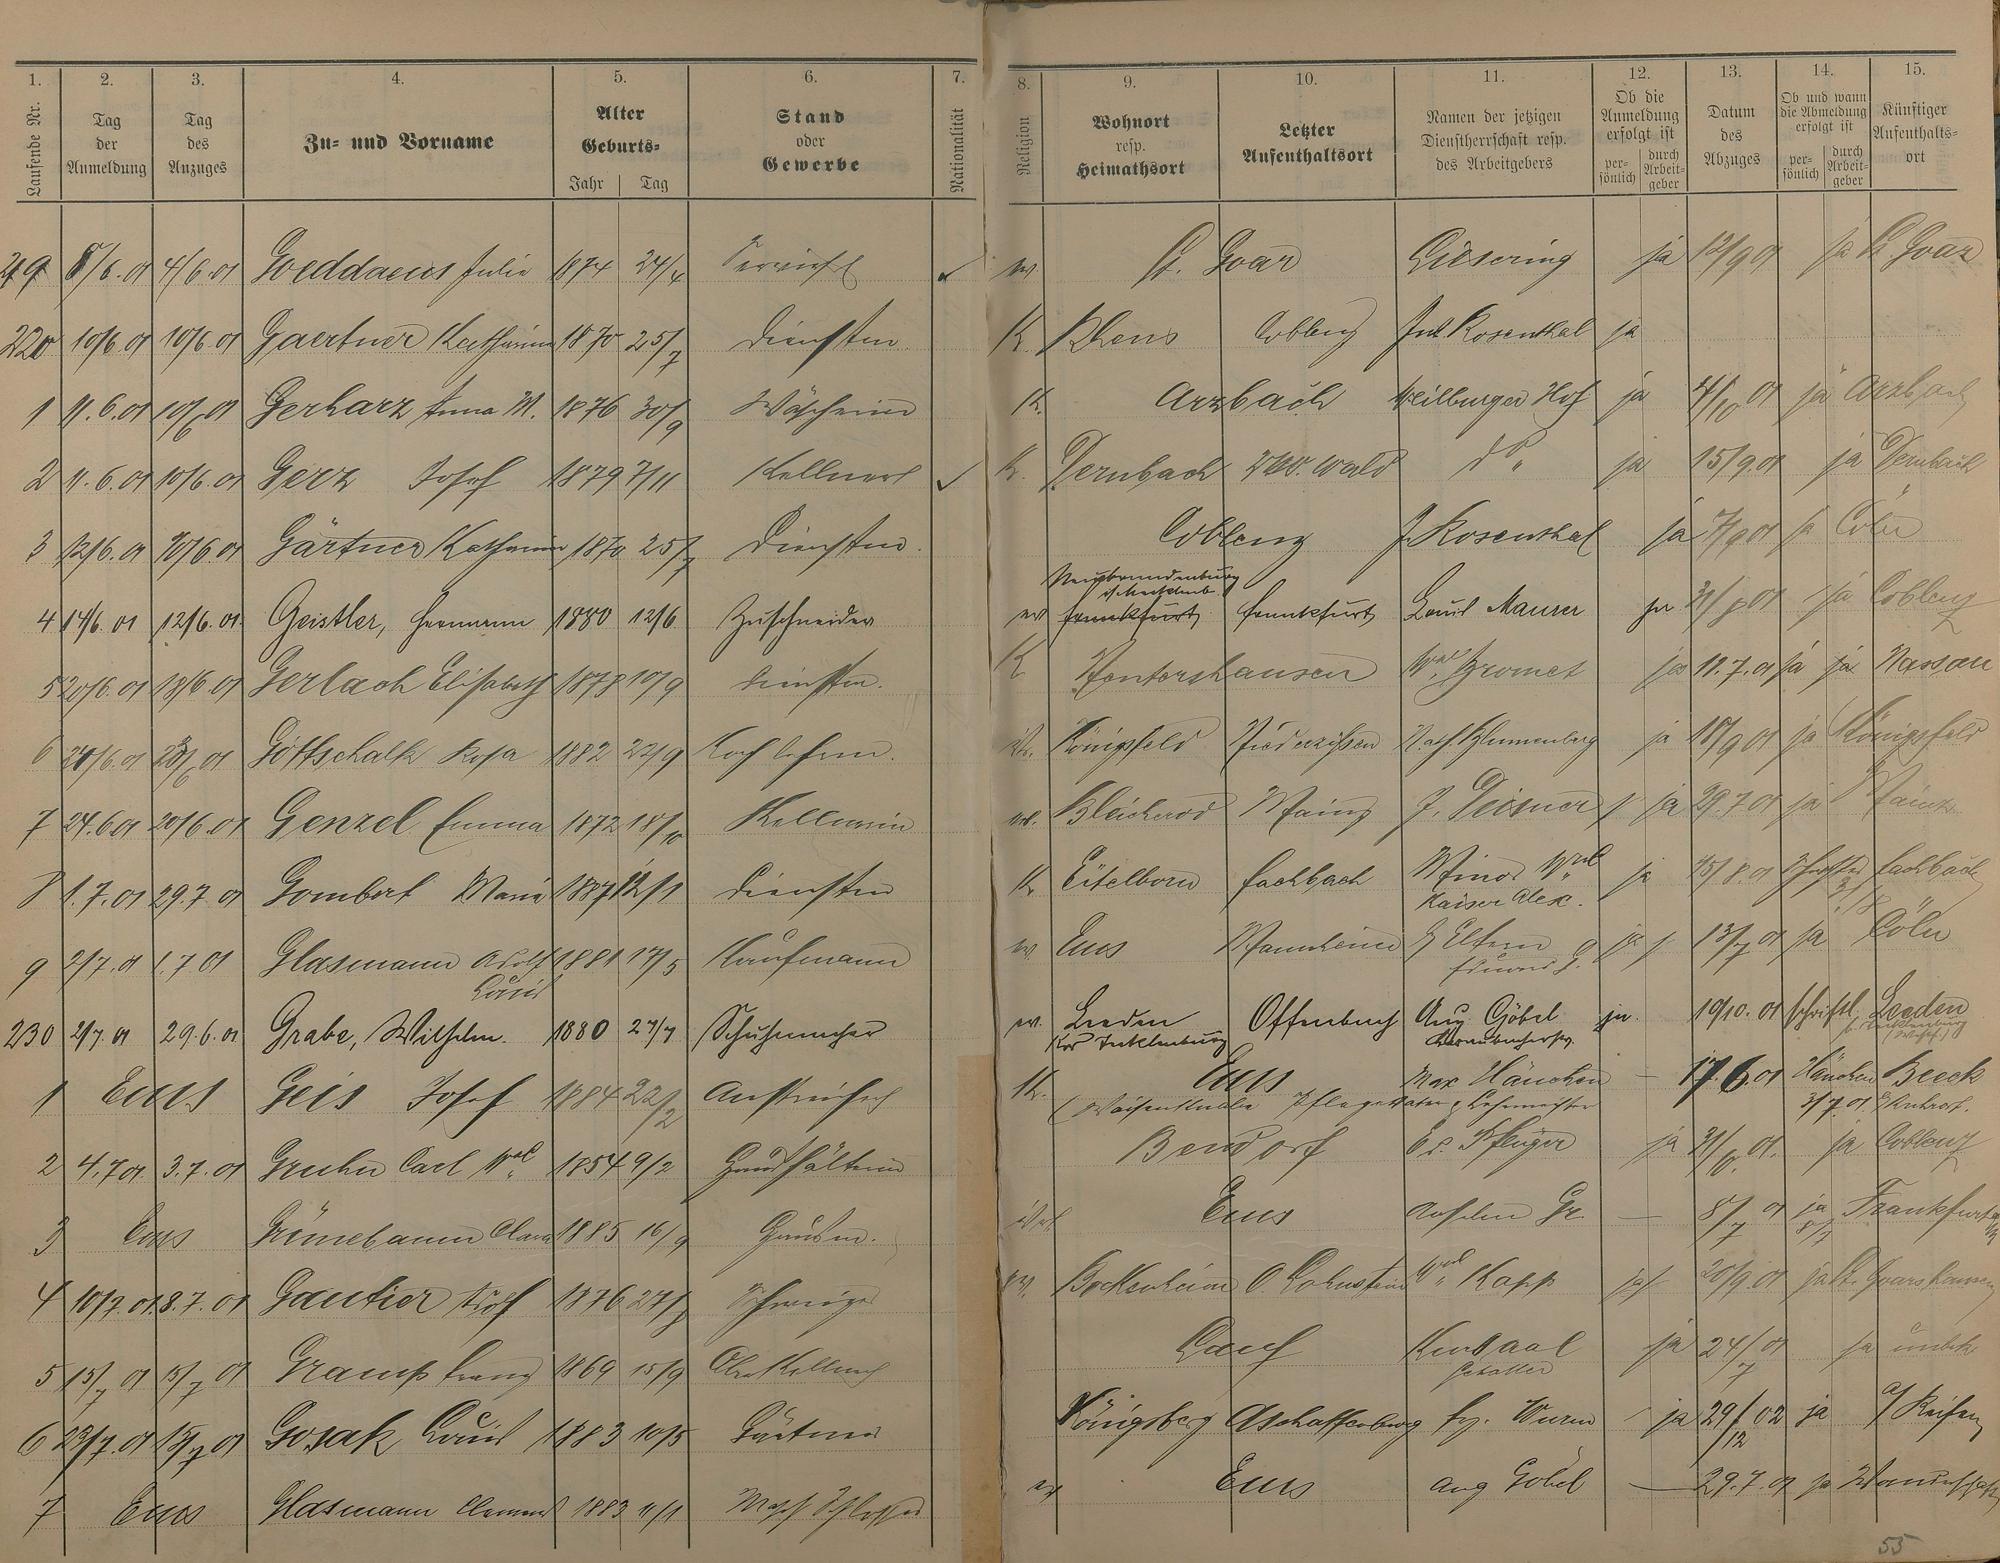 1. 2. 3. 4. 5. 6. 7. 8. 9. 10. 11. 12. 13. 14. 15.
Laufende Nr. | Tag der Anmeldung | Tag des Anzuges | Zu- und Vorname | Alter Geburts- Jahr Tag | Stand oder Gewerbe | Nationalität | Religion | Wohnort resp. Heimathsort | Letzter Aufenthaltsort | Namen der jetzigen Dienstherrschaft resp. des Arbeitgebers | Ob die Anmeldung erfolgt ist persönlich durch Arbeitgeber | Datum des Abzuges | Ob und wann die Abmeldung erfolgt ist persönlich durch Arbeitgeber | Künftiger Aufenthaltsort
4/6.01 Goeddaeus Julie 1874 24/4 ev. St. Goar Giesering ja 12/9 01 ja St. Goar
220 10/6 01 10/6 01 Gaertner Katharina 1870 25/7 Diensten K. Rhens Coblenz Jul. Rosenthal ja
1 11.6.01 10/6 01 Gerharz Anna M. 1876 30/9 Wäscherin K. Arzbach Weilburger Hof ja 4/10 01 ja Arzbach
2 11.6.01 10/6 01 Gerz Josef 1879 7/11 Kellner K. Dernbach Wald do ja 15/9 01 ja Dernbach
3 12/6.01 10/6 01 Gärtner Katharina 1870 25/7 Diensten. Coblenz J. Rosenthal ja 7/9 01 ja Cöln
Neubrandenburg
4 14/6. 01 12/6. 01. Geistler, Hermann 1880 12/6 Zuschneider ev Frankfurt Frankfurt Louis Maurer ja ja Coblenz
5 20/6.01 Gerlach Elisabeth 10/9 Diensten. K Nentershausen Wwe. ja 11.7.01 ja ja Nassau
6 Gottschalk Rosa 1882 22/9 Koch lehrn. Königsfeld Niederissen Nath. Blumenberg ja 18/9 01 ja Königsfeld
7 24.6 01 20/6.01 Genzel Emma 1872 18/10 Kellnerin ev. Bleicherod Mainz J. Deisner ja 29.7 01 ja Mainz
8 1.7.01 29.7 01 Gombert Maria Diensten K Eitelborn Fachbach Minor Wwe ja 15/8.01 Fachbach
Kaiser Alex.
9 2/7.01 1.7 01 Glasmann Adolf 1881 17/5 Kaufmann ev Ems Mannheim Eltern ja 13/7 01 ja Cöln
Louis Eduard G.
230 2/7 01 29.6.01 Grabe, Wilhelm. 1880 27/7 Schuhmacher ev. Leeden Offenbach Aug. Göbel ja. 19/10. 01 schriftl. Leeden
Krs Tecklenburg
1 Ems Geis Josef 1884 22/2 Anstreicher K. Ems Max Hänchen — 17.6.01 Hänchen Beeck
Pflegevater, Lehrmeister 3/7.01
2 4.7 01. 3.7.01 Gruhn Carl Wwe 1854 9/2 Haushälterin Bendorf Ed. Pflüger ja ja Coblenz
3 Ems Grünebaum Clara 1885 16/9 Ems Anselm Gr. — 8/7 01 ja Frankfurt
8/7
4 10/7.01 8.7.01 Gautier Adolf 1876 Bockenheim O. Lahnstein Wwe Kapp 20/9.01 ja St. Goarshausen
5 15/7 01 01 Gramss Franz 1869 15/9 Oberkellner Kursaal ja 24/7 01 ja unbek
6 Gosak Louis 1883 10/5 Gärtner Königsberg Aschaffenburg Frz. Wurm ja 29/12 02 ja a/ Reisen
7 Ems Glasmann Clemens 1883 11/1 Masch Schlosser ev Ems Aug Göbel — 29.7.01 ja Wanderschaft
55